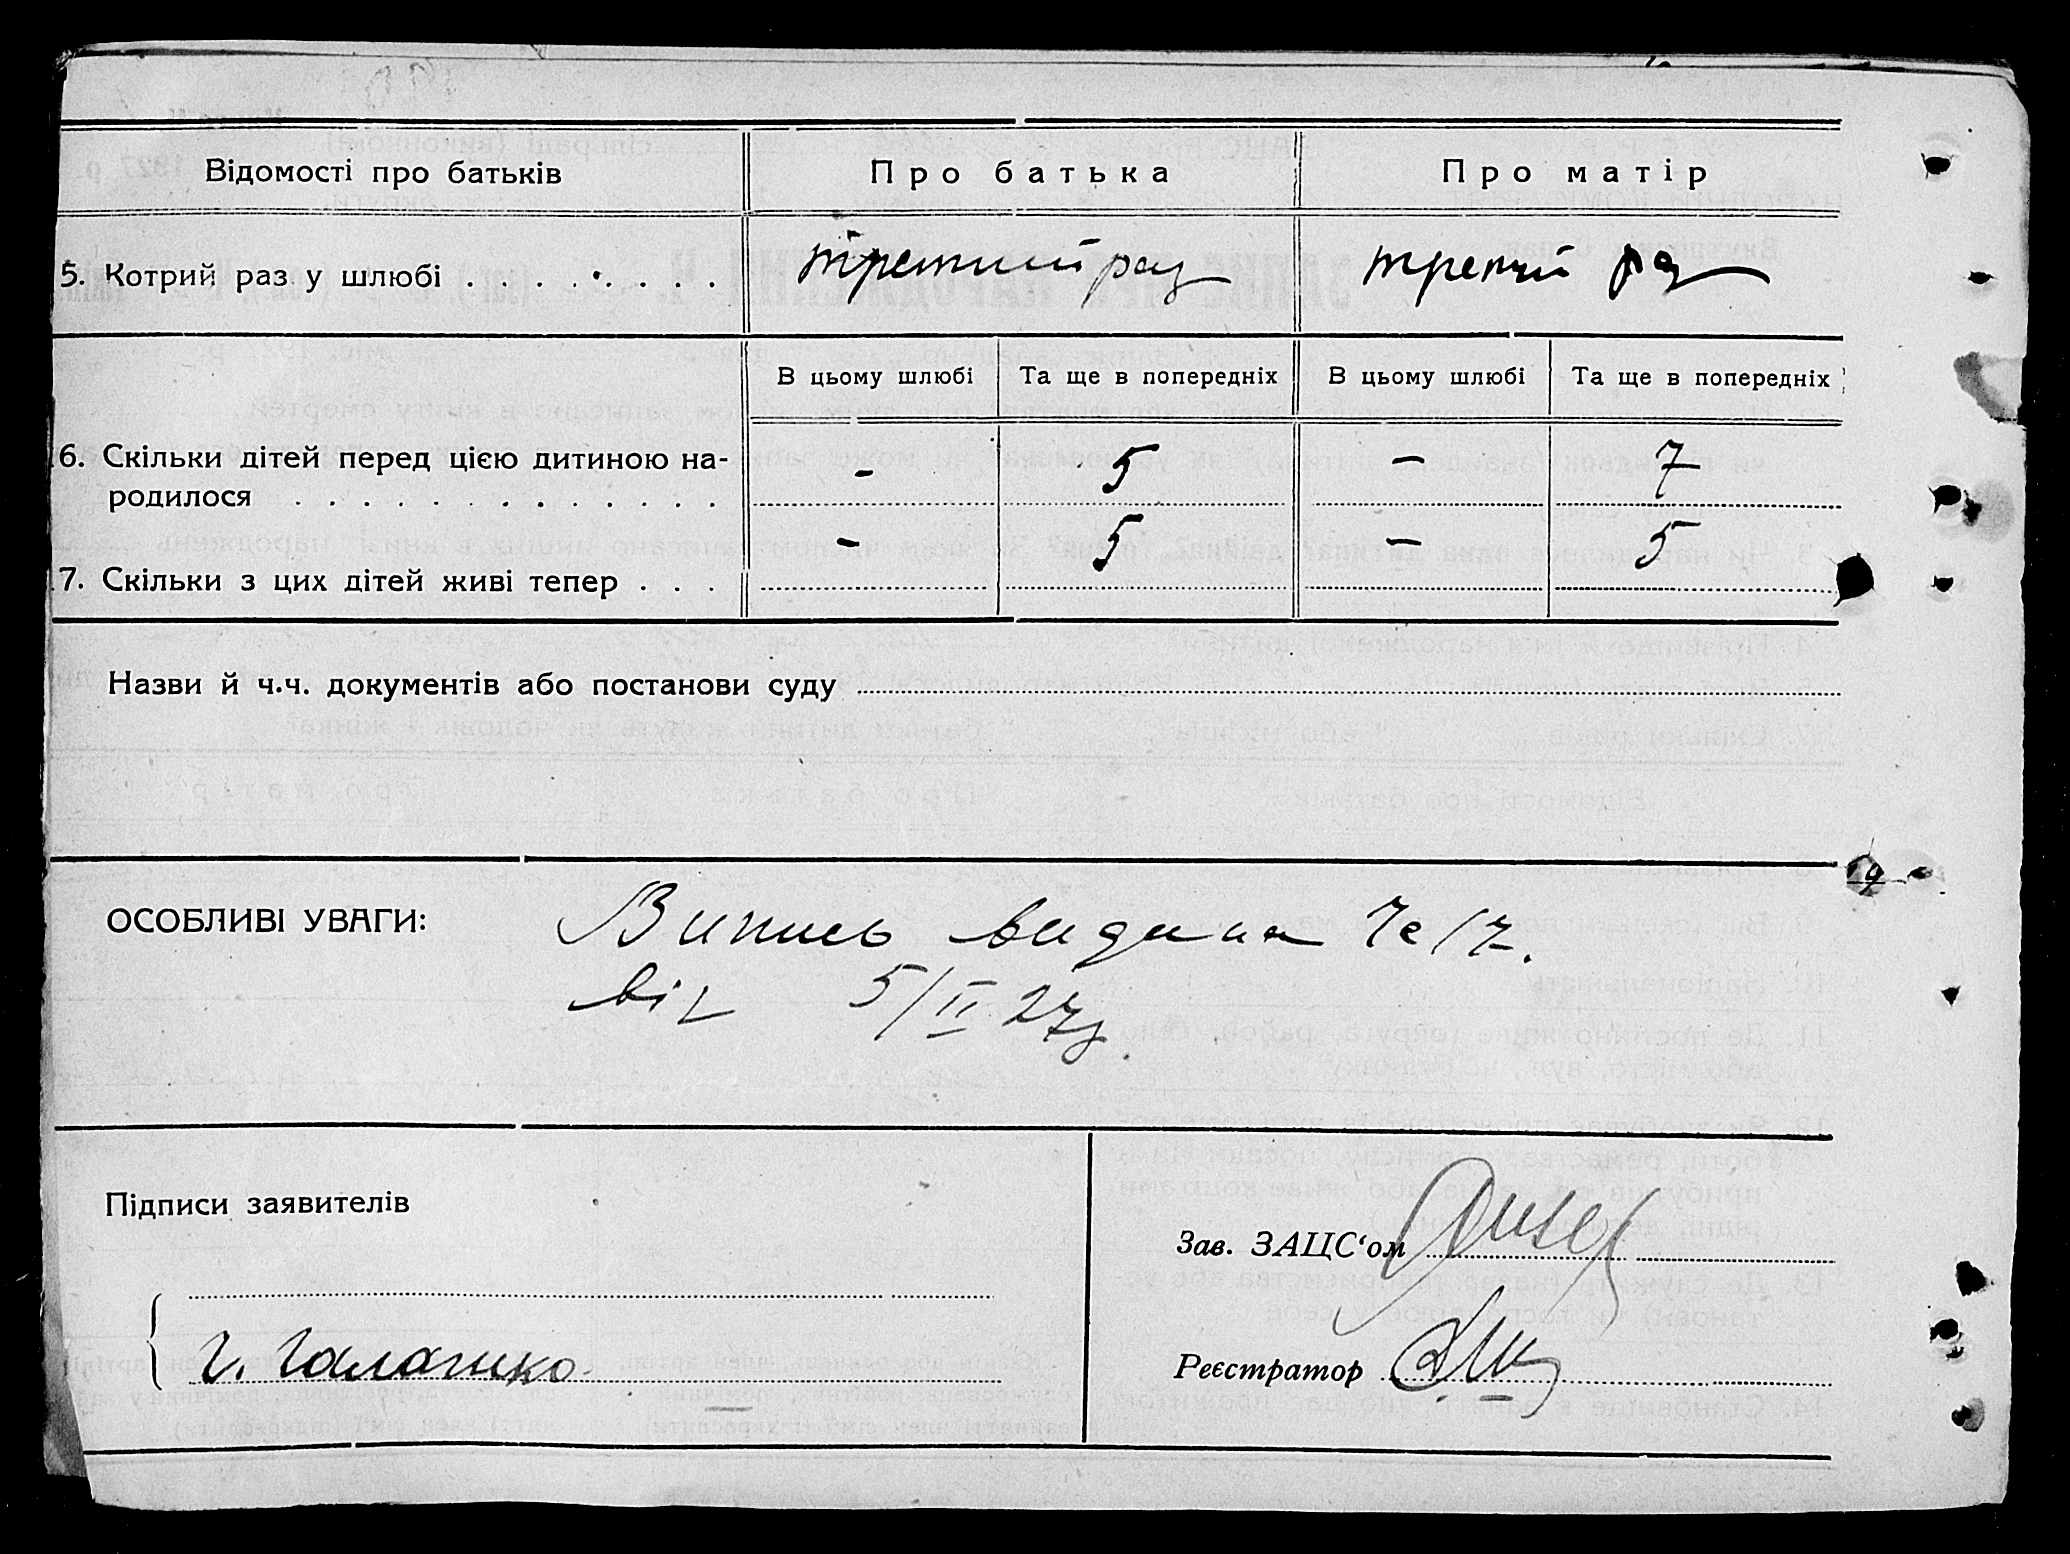 Відомості про батьків
Про батька
Про матір
5. Котрий раз у шлюбі . . . . . . . .
третий раз
третий раз
В цьому шлюбі
Та ще в попередніх
В цьому шлюбі
Та ще в попередніх
6. Скільки дітей перед цією дитиною на-
родилося . . . . . . . . . . . .
-
5
-
7
7. Скільки з цих дітей живі тепер . . .
-
5
-
5
Назви й ч.ч. документів або постанови суду
ОСОБЛИВІ УВАГИ:
Випись видана
від 5/II 27р.
Підписи заявителів
Зав. ЗАЦС‘ом
Г. Галашко
Реєстратор